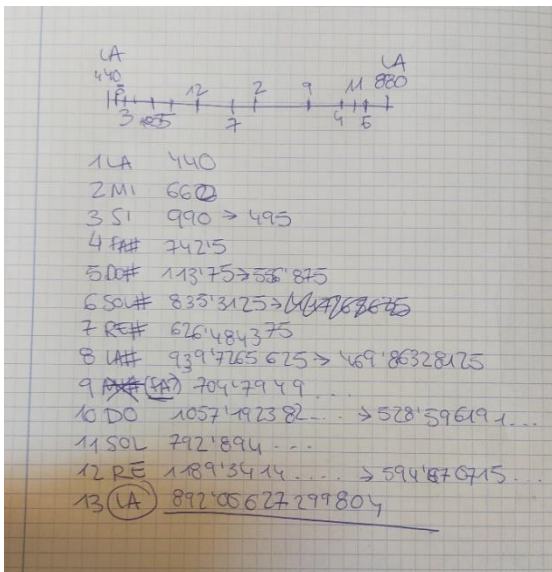 LA LA
440 880
8 12 2 9 11
3 10 5 7 4 6 1
1 LA 440
2 MI 660
3 SI 990 → 495
4 FA# 742'5
5 DO# 113'75 → 556'875
6 SOL# 835'3125 →
7 RE# 626'484375
8 LA# 939'7265625 → 469'86328125
9 (FA) 704'7949...
10 DO 1057'192382... → 528'596191...
11 SOL 792'894...
12 RE 1189'3414.... → 594'670715...
13 LA 892'00627299804